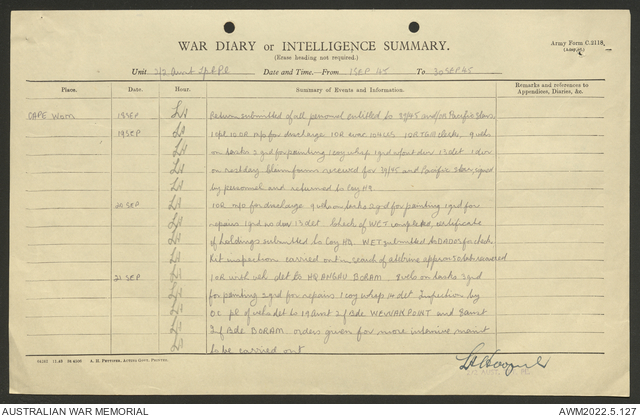 WAR DIARY or INTELLIGENCE SUMMARY.
(Erase heading not required.)
Army Form C.2118.
Unit 2/2 Amnt Tpt Pl Date and Time.—From 1 SEP 45 To 30 SEP 45
Place. Date. Hour. Summary of Events and Information. Remarks and references to Appendices, Diaries, &c.
CAPE Wom 18 SEP Return submitted of all personnel entitled to 39/45 and/or Pacific Stars.
19 SEP 10R m/o for discharge 10R evac 10R TGR clerk 9 vehs
on tasks 2 grd for painting 1 coy whop 1 grd without dvr 13 det 1 dvr
on rest day received for 39/45 and Pacific Stars signed
by personnel and returned to Coy HQ.
20 SEP 10R m/o for discharge 9 vehs on tasks 2 grd for painting 1 grd for
repairs 1 grd no dvr 13 det Check of WET completed, certificate
of holdings submitted to Coy HQ. WET submitted to DADOS for check.
Kit inspection carried out in search of atebrine approx 50 tabs recovered
21 SEP 10R with veh det to HQ ANGAU BORAM 9 vehs on tasks 2 grd
for painting 2 grd for repairs 1 coy whop 14 det Inspection by
OC pl of vehs det to 19 Aust Inf Bde WEWAK POINT and 8 Aust
Inf Bde BORAM orders given for more intensive maint
to be carried out
A. H. PETTIFER, ACTING GOVT. PRINTER.
AUSTRALIAN WAR MEMORIAL AWM2022.5.127